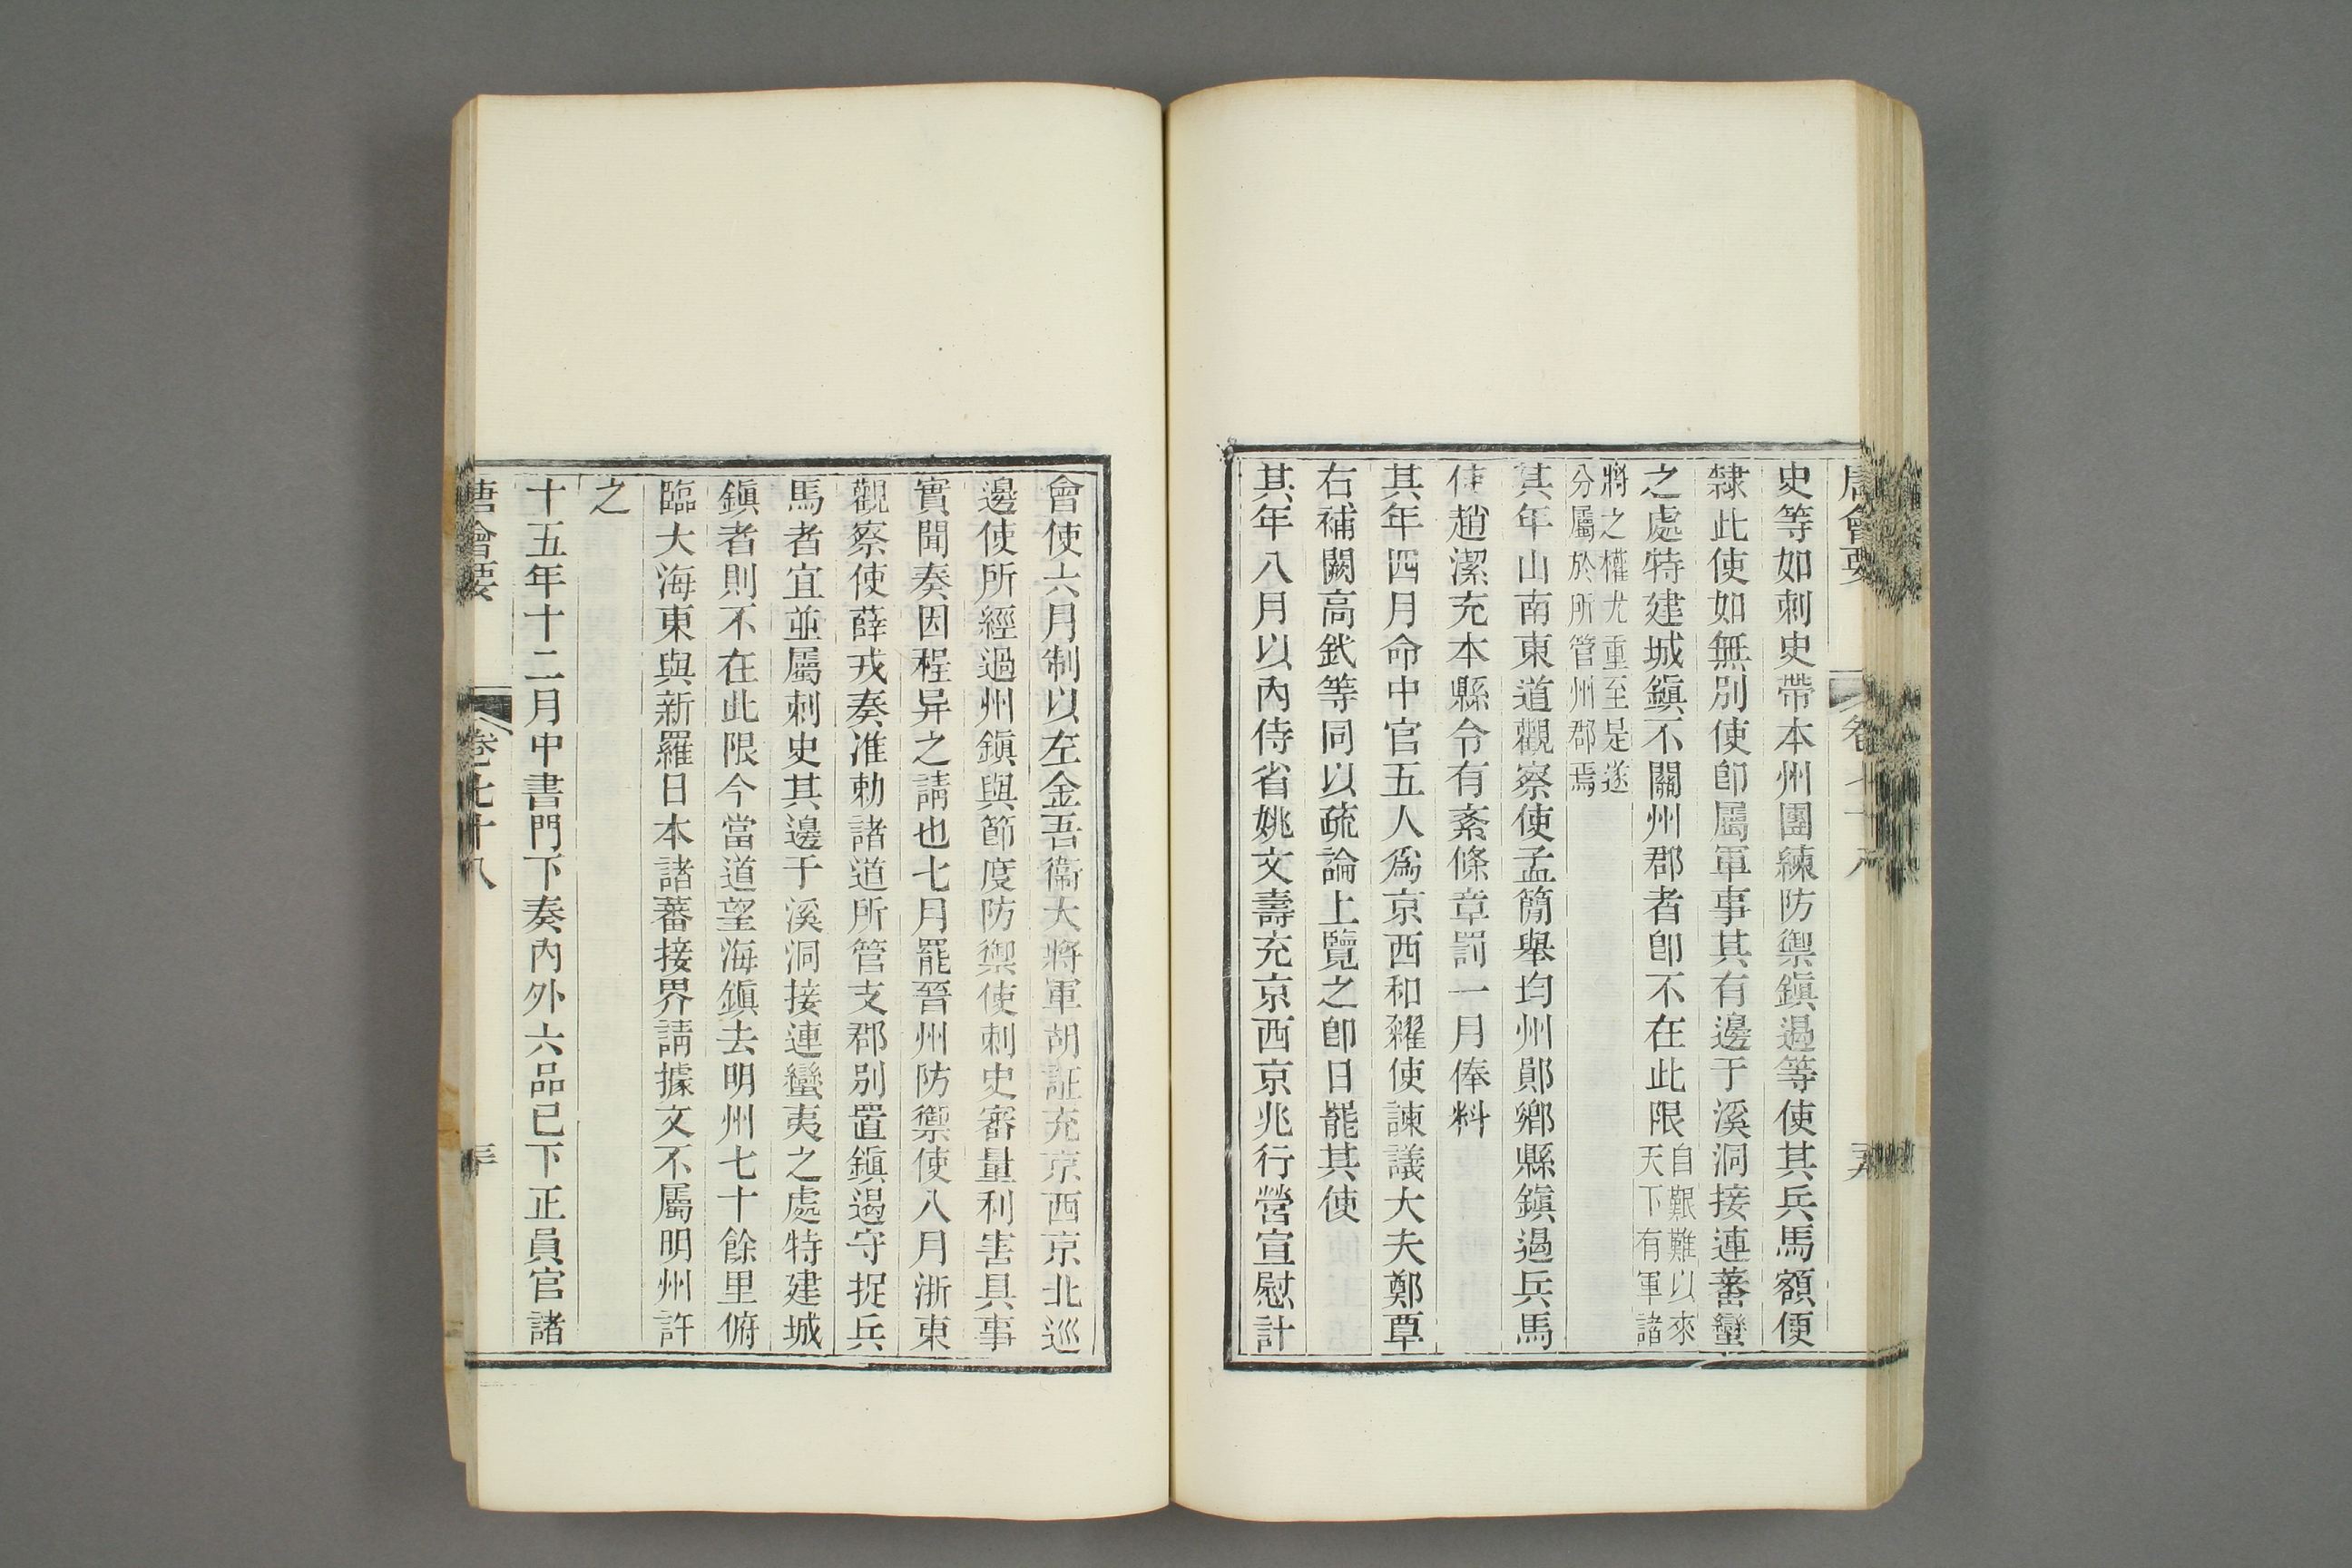 唐會要 卷七十八
史等如刺史帶本州團練防禦鎮遏等使其兵馬額便
隸此使如無別使即屬軍事其有邊于溪洞接連蕃蠻
之處特建城鎮不關州郡者即不在此限自艱難以來天下有軍諸
將之權尤重至是遂分屬於所管州郡焉
其年山南東道觀察使孟簡舉均州鄖鄉縣鎮遏兵馬
使趙潔充本縣令有紊條章罰一月俸料
其年四月命中官五人為京西和糴使諫議大夫鄭覃
右補闕高釴等同以疏論上覽之即日罷其使
其年八月以內侍省姚文壽充京西京兆行營宣慰計
會使六月制以左金吾衞大將軍胡証充京西京北巡
邊使所經過州鎮與節度防禦使刺史審量利害具事
實聞奏因程异之請也七月罷晉州防禦使八月浙東
觀察使薛戎奏准勅諸道所管支郡別置鎮遏守捉兵
馬者宜並屬刺史其邊于溪洞接連蠻夷之處特建城
鎮者則不在此限今當道望海鎮去明州七十餘里俯
臨大海東與新羅日本諸蕃接界請據文不屬明州許
之
十五年十二月中書門下奏內外六品已下正員官諸
唐會要 卷七十八